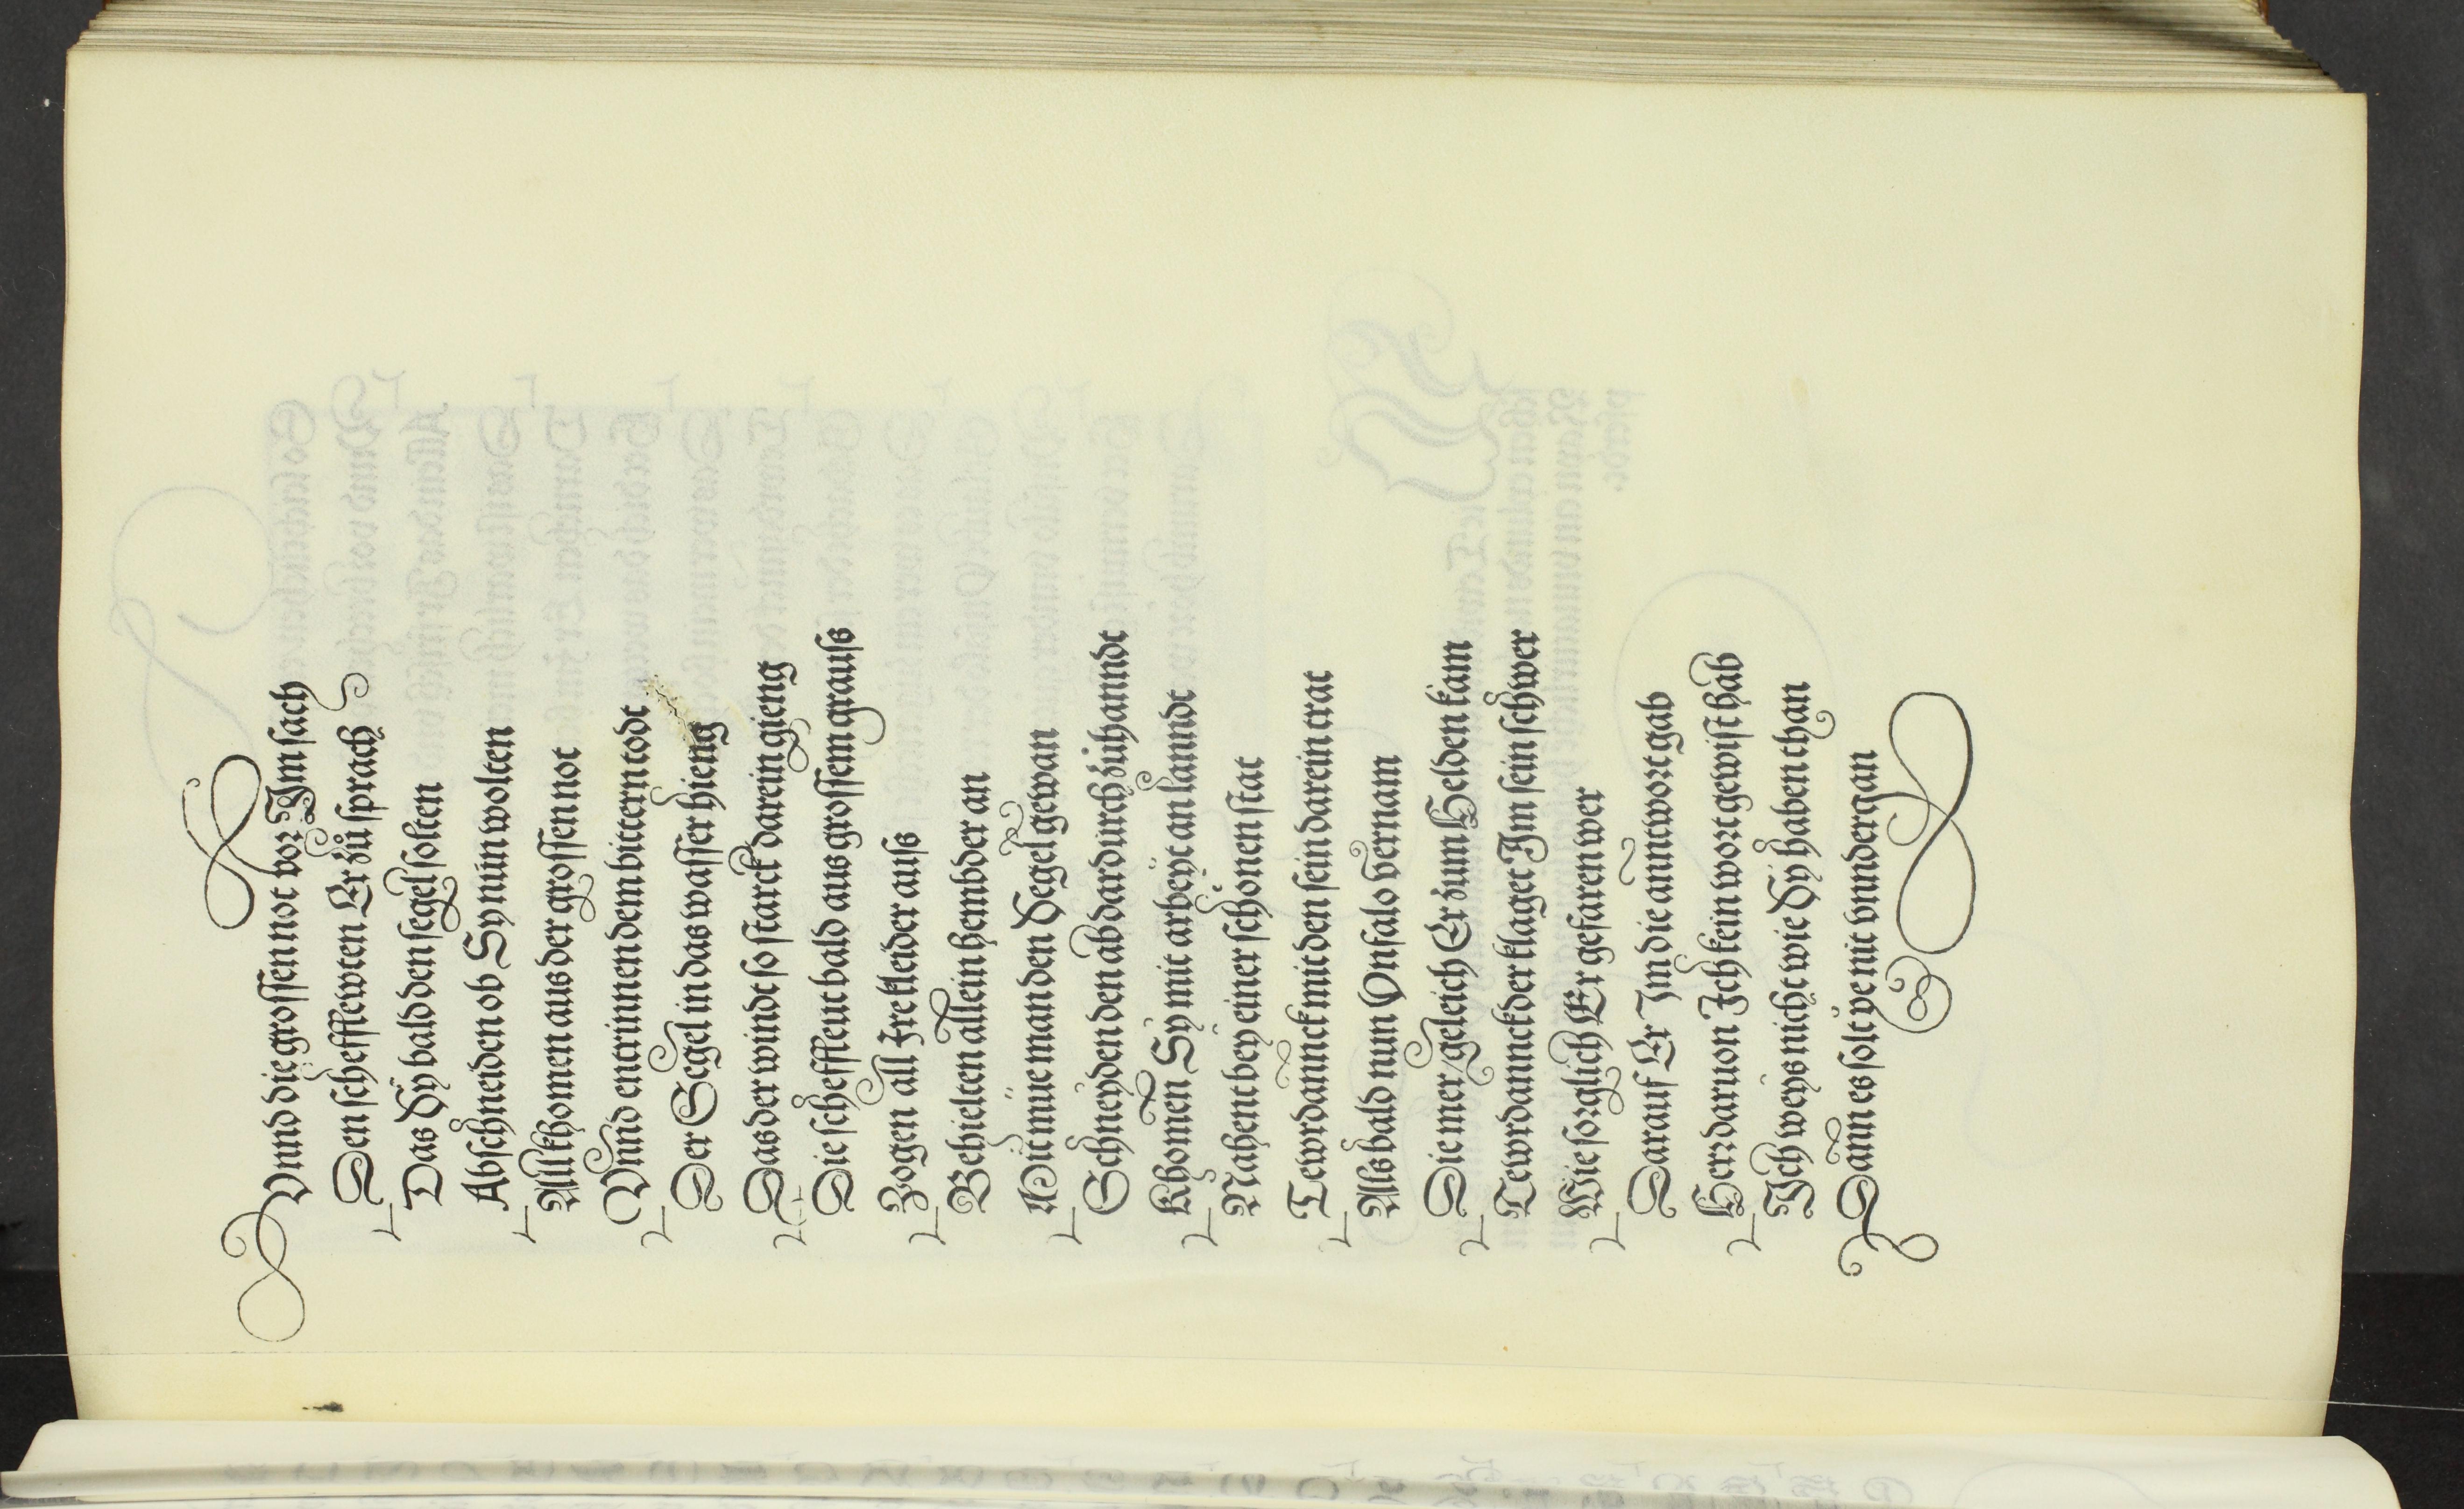 Vnnd die grossen not vor Im sach
Den schefflewten Er zů sprach
Das Sÿ bald den segel solten
Abschneiden ob Sy nun wolten
All khomen aus der grossen not
Vnnd entrinnen dem bittern todt
Der Segel in das wasser hieng
Das der windt so starck darein gieng
Die scheffleut bald aus grossem grauss
Zogen all Ire kleider auss
Behielten allein hembder an
Mit mue man den Segel gewan
Schneyden den ab dardurch zůhanndt
Khomen Sy mit arbeyt an lanndt
Nahent bey einer schönen stat
Tewrdannck mit den sein darein trat
Als bald nun Vnfalo vernam
Die mer/geleich Er zum Helden kam
Tewrdannck der klaget Im sein schwer
Wie sorglich Er gefaren wer
Darauf Er Im die anntwort gab
Herr daruon Ich kein wort gewist hab
Ich weys nicht wie Sy haben than
Dann es solt ye nit vnndergan